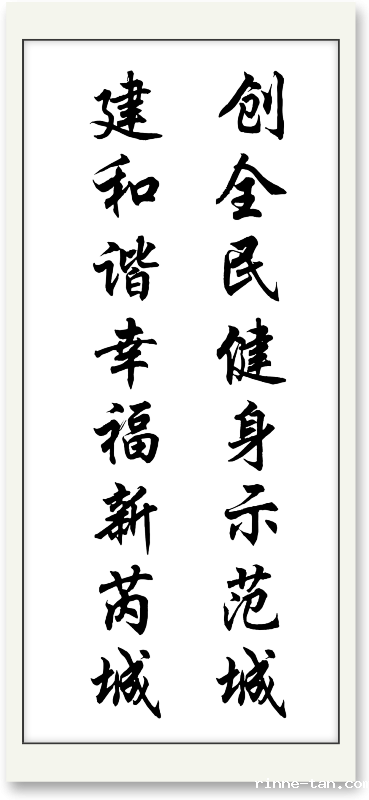 创全民健身示范城
建和谐幸福新芮城
rinne-tan.com